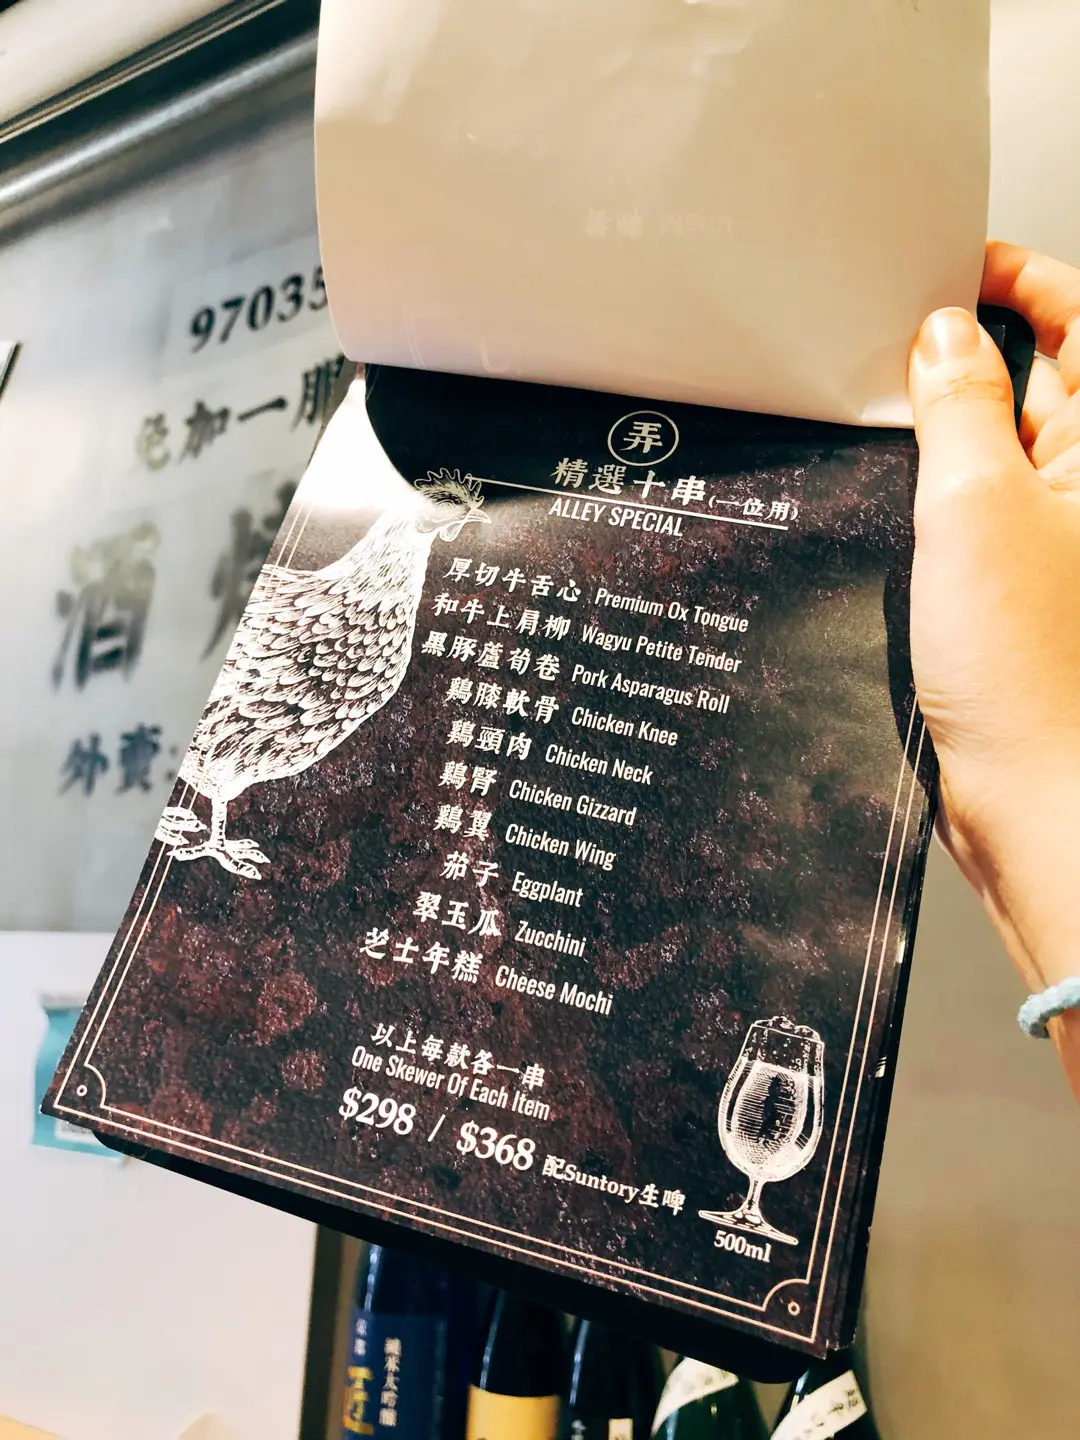 97035
免加一服
酒
外賣:
弄
精選十串(一位用)
ALLEY SPECIAL
厚切牛舌心 Premium Ox Tongue
和牛上肩柳 Wagyu Petite Tender
黑豚蘆荀卷 Pork Asparagus Roll
鷄膝軟骨 Chicken Knee
鷄頸肉 Chicken Neck
鷄腎 Chicken Gizzard
鷄翼 Chicken Wing
茄子 Eggplant
翠玉瓜 Zucchini
芝士年糕 Cheese Mochi
以上每款各一串
One Skewer Of Each Item
$298 / $368 配Suntory生啤
500ml
純米大吟釀